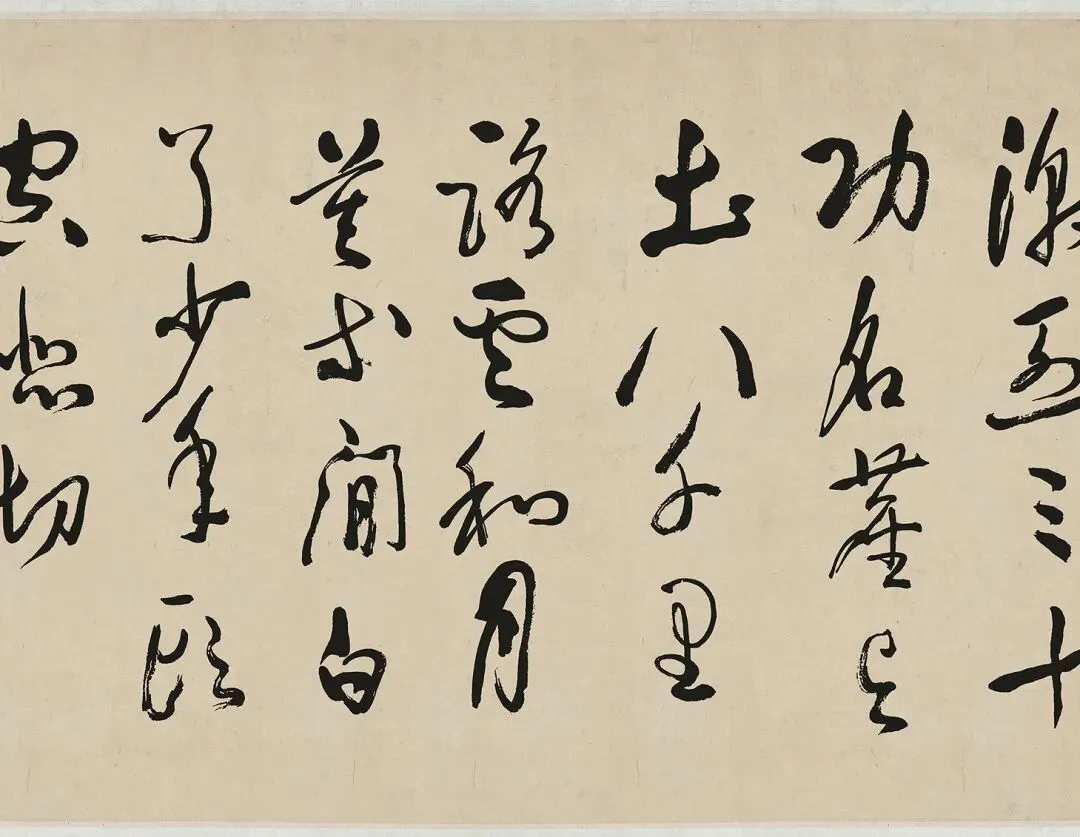 激烈三十
功名塵与
土八千里
路雲和月
莫等閒白
了少年頭
空悲切